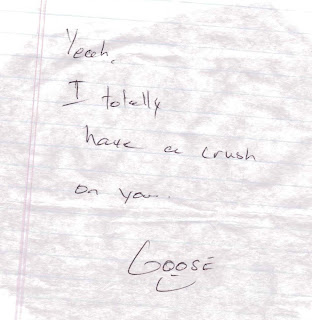 Yeah.
I totally
have a crush
on you.
GOOSE